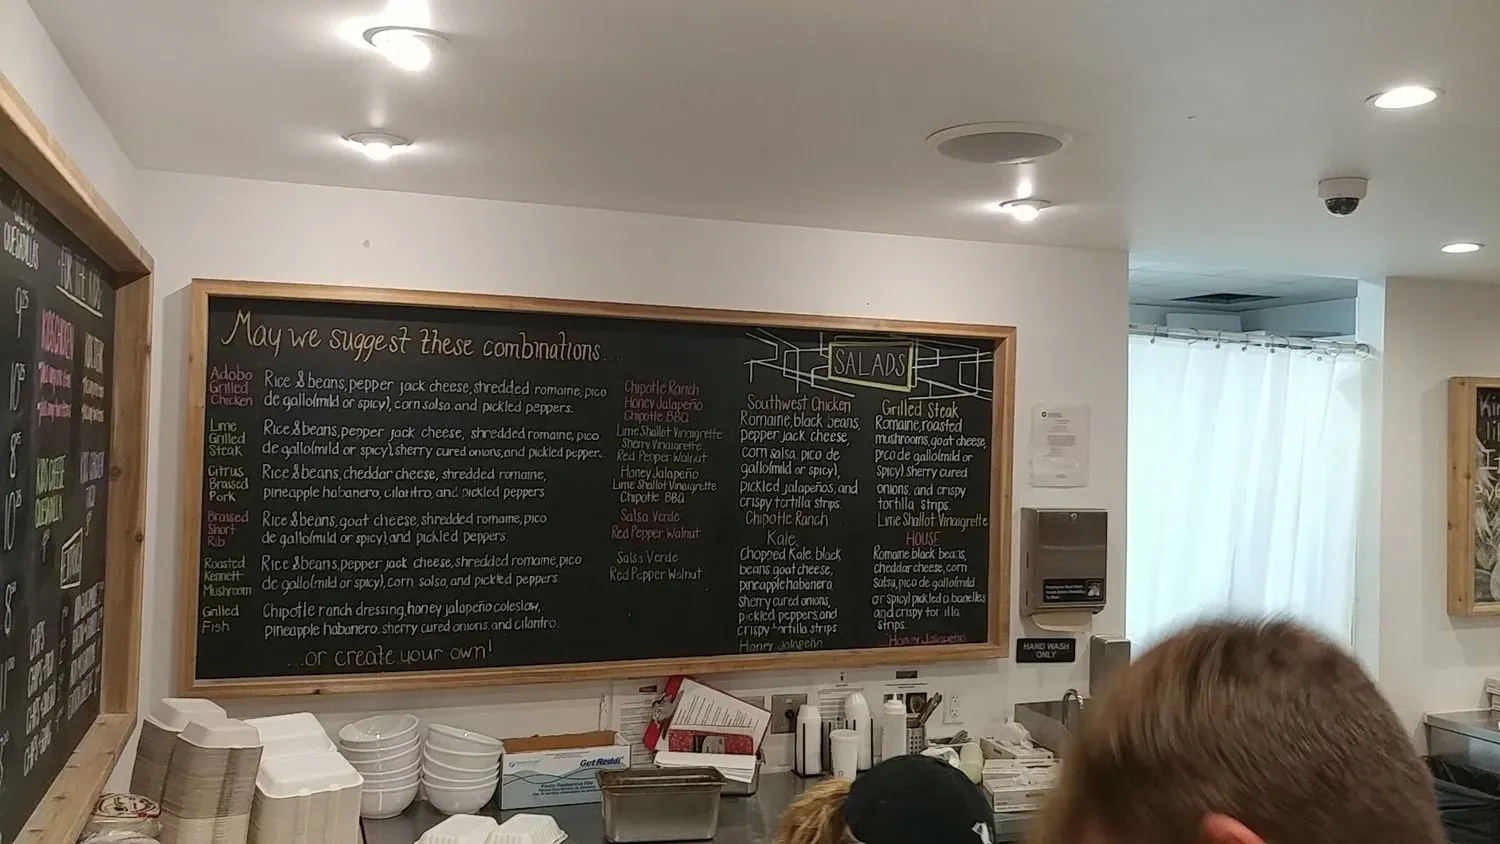 SALADS
QUESADILLAS
9.25
10.25
8.25
10.25
FOR THE KIDS
KIDS CHICKEN
KIDS CHEESE
QUESADILLA
May we suggest these combinations...
Adobo
Grilled
Chicken
Rice & beans, pepper jack cheese, shredded romaine, pico
de gallo(mild or spicy), corn salsa and pickled peppers.
Chipotle Ranch
Honey Jalapeño
Chipotle BBQ
Lime
Grilled
Steak
Rice & beans, pepper jack cheese, shredded romaine, pico
de gallo(mild or spicy), sherry cured onions, and pickled peppers.
Lime Shallot Vinaigrette
Sherry Vinaigrette
Red Pepper Walnut
Citrus
Braised
Pork
Rice & beans, cheddar cheese, shredded romaine,
pineapple habanero, cilantro, and pickled peppers.
Honey Jalapeño
Lime Shallot Vinaigrette
Chipotle BBQ
Braised
Short
Rib
Rice & beans, goat cheese, shredded romaine, pico
de gallo(mild or spicy), and pickled peppers.
Salsa Verde
Red Pepper Walnut
Roasted
Kennett
Mushroom
Rice & beans, pepper jack cheese, shredded romaine, pico
de gallo(mild or spicy), corn salsa, and pickled peppers
Salsa Verde
Red Pepper Walnut
Grilled
Fish
Chipotle ranch dressing, honey jalapeño coleslaw,
pineapple habanero, sherry cured onions, and cilantro.
...or create your own!
SALADS
Southwest Chicken
Romaine, black beans,
pepper jack cheese,
corn salsa, pico de
gallo(mild or spicy),
pickled jalapeños, and
crispy tortilla strips.
Chipotle Ranch
Kale
Chopped Kale, black
beans, goat cheese,
pineapple habanero,
sherry cured onions,
pickled peppers, and
crispy tortilla strips
Honey Jalapeño
Grilled Steak
Romaine, roasted
mushrooms, goat cheese,
pico de gallo(mild or
spicy) sherry cured
onions, and crispy
tortilla strips.
Lime Shallot Vinaigrette
HOUSE
Romaine, black beans,
cheddar cheese, corn
salsa, pico de gallo(mild
or spicy) pickled
and crispy tortilla
strips.
Honey Jalapeño
HAND WASH
ONLY
GetReddi